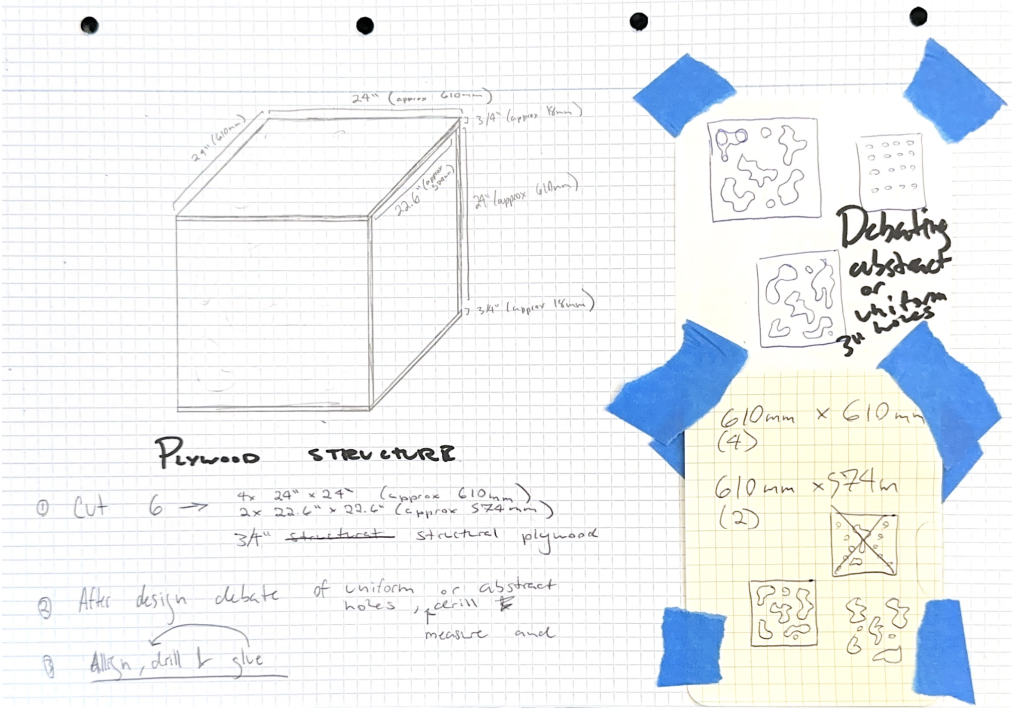 24" (approx 610mm)
24" (610mm)
3/4" (approx 18mm)
22.6" (approx 574mm)
24" (approx 610mm)
3/4" (approx 18mm)
PLYWOOD STRUCTURE
① Cut 6 → 4x 24" x 24" (approx 610mm)
2x 22.6" x 22.6" (approx 574mm)
3/4" structural structural plywood
② After design debate of uniform or abstract
holes, drill
measure and
③ Align, drill & glue
Debating
abstract
or
uniform
3" holes
610mm x 610mm
(4)
610mm x 574m
(2)